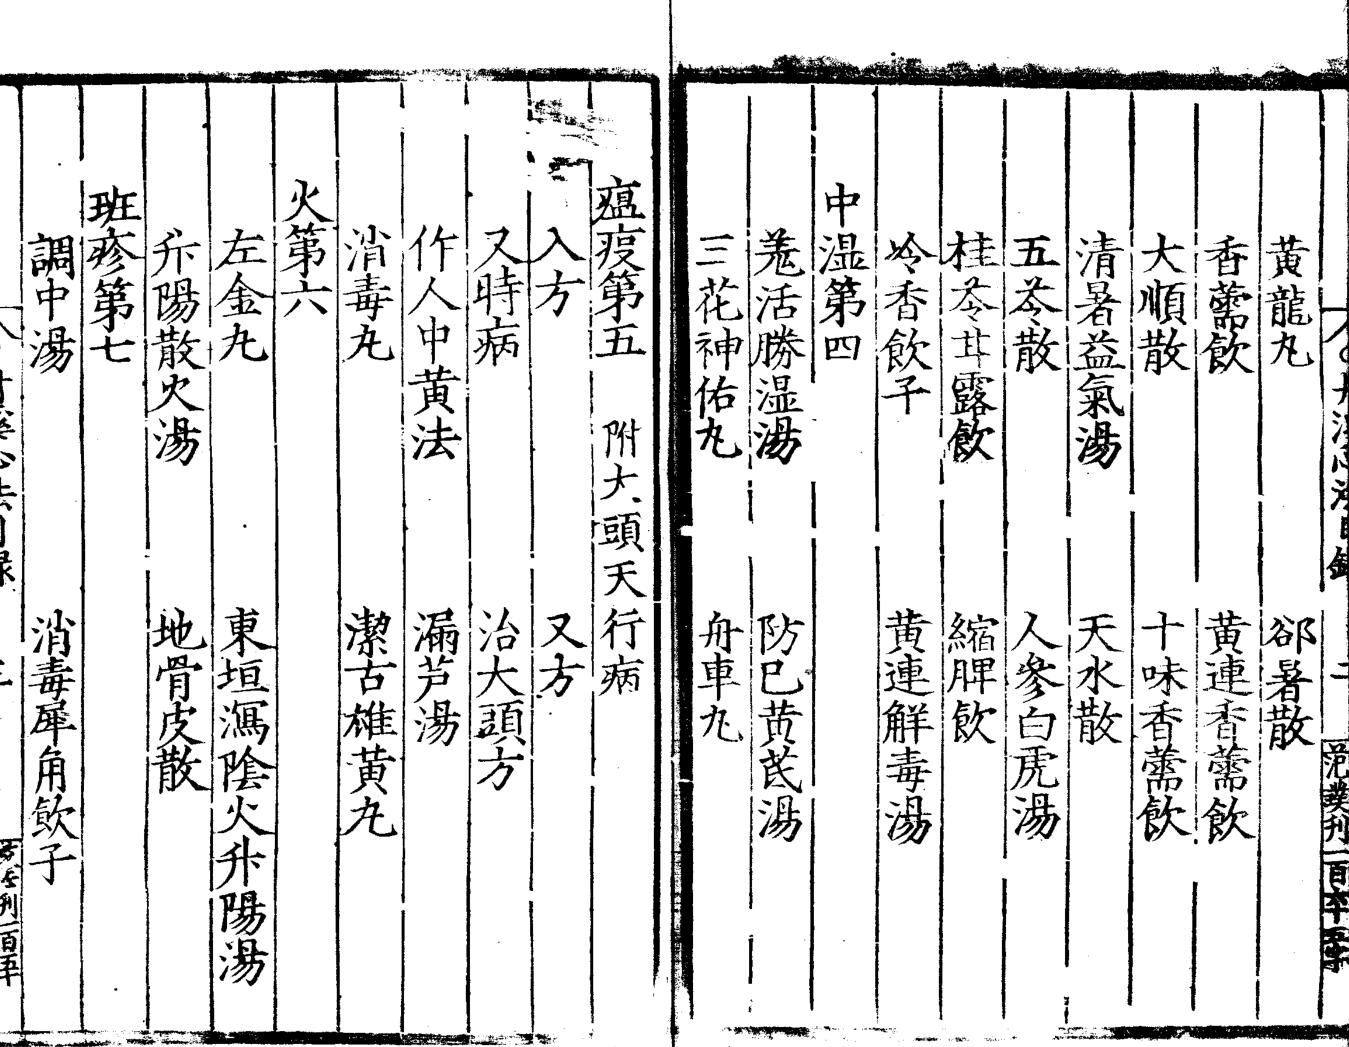 黃龍丸　郤暑散
香薷飲　黃連香薷飲
大順散　十味香薷飲
清暑益氣湯　天水散
五苓散　人參白虎湯
桂苓甘露飲　縮脾飲
冷香飲子　黄連解毒湯
中湿第四
羗活勝湿湯　防巳黄芪湯
三花神佑丸　舟車丸
瘟疫第五　附大頭天行病
入方　又方
又時病　治大頭方
作人中黄法　漏芦湯
消毒丸　潔古雄黄丸
火第六
左金丸　東垣瀉陰火升陽湯
升陽散火湯　地骨皮散
班疹第七
調中湯　消毒犀角飲子